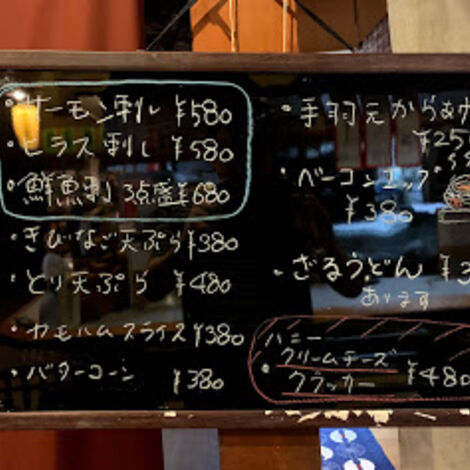 ・サーモン刺し ¥580
・ヒラス刺し ¥580
・鮮魚刺 3点盛 ¥680
・きびなご天ぷら ¥380
・とり天ぷら ¥480
・カモハムスライス ¥380
・バターコーン ¥380
・手羽元からあげ
¥250
・ベーコンエッグ
¥380
・ざるうどん
あります
ハニー
・クリームチーズ
クラッカー ¥480